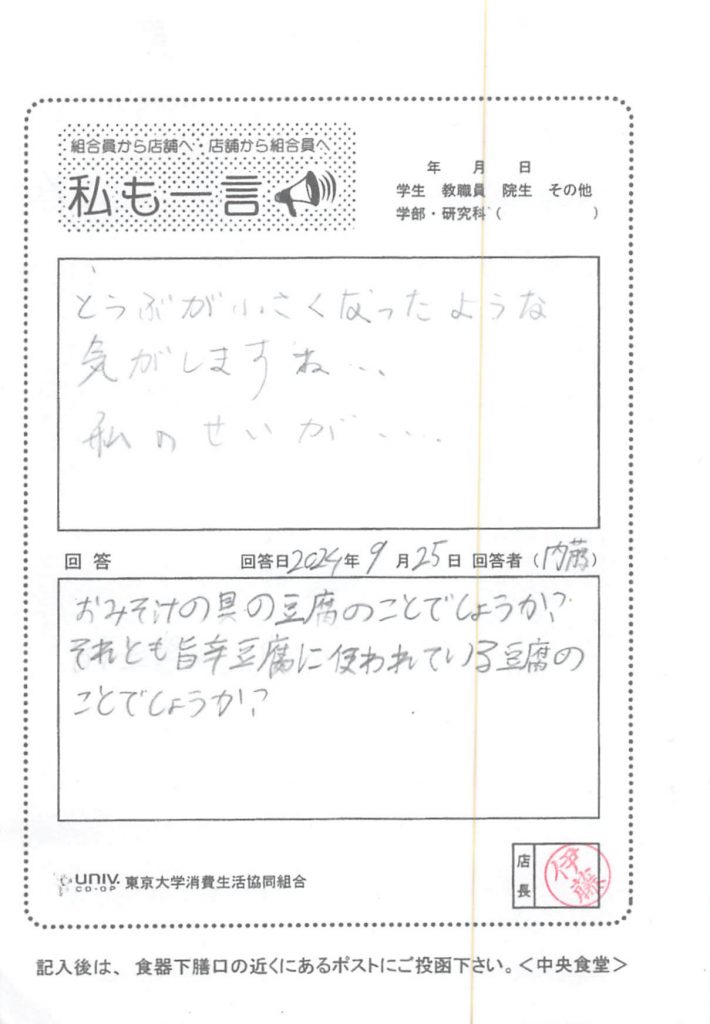 組合員から店舗へ・店舗から組合員へ
私も一言
年 月 日
学生 教職員 院生 その他
学部・研究科（ ）
とうふが小さくなったような
気がしますね…
私のせいが….
回答 回答日2024年9月25日 回答者（内藤）
おみそ汁の具の豆腐のことでしょうか?
それとも旨辛豆腐に使われている豆腐の
ことでしょうか?
UNIV. CO-OP 東京大学消費生活協同組合
店長 伊藤
記入後は、食器下膳口の近くにあるポストにご投函下さい。＜中央食堂＞